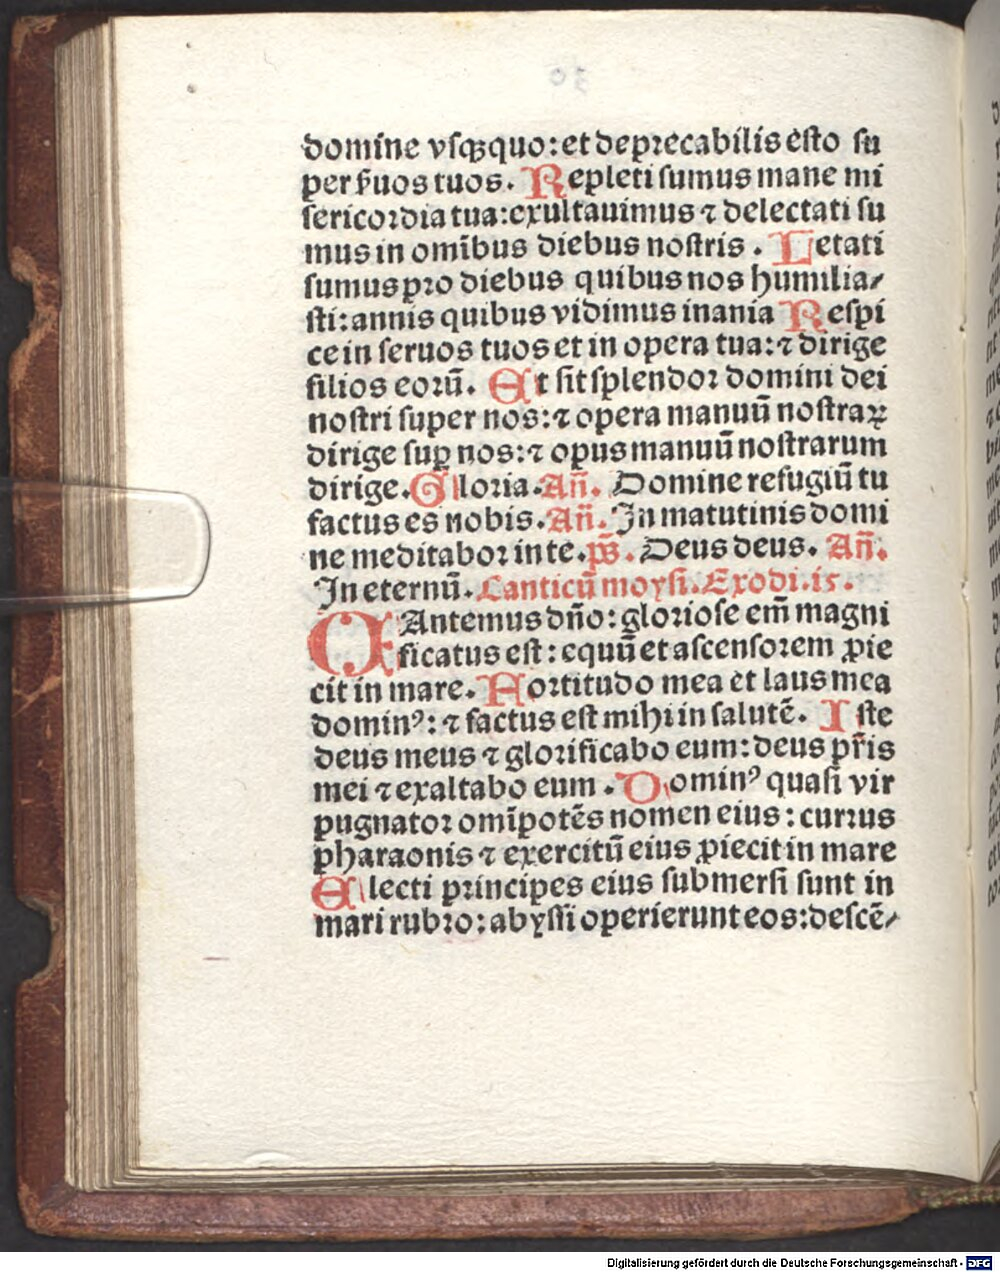 domine vſqꝫquo: et deprecabilis esto ſu
per ẜuos tuos. Repleti ſumus mane mi
ſericordia tua: exultauimus ⁊ delectati ſu
mus in omībus diebus noſtris. Letati
ſumus pro diebus quibus nos humilia/
ſti: annis quibus vidimus inania Reſpi
ce in ſeruos tuos et in opera tua: ⁊ dirige
filios eorū. Et ſit ſplendor domini dei
noſtri ſuper nos: ⁊ opera manuū noſtraꝝ
dirige ſuꝑ nos: ⁊ opus manuū noſtrarum
dirige. Gloria. Añ. Domine refugiū tu
factus es nobis. Añ. In matutinis domi
ne meditabor in te. p̅s. Deus deus. Añ.
In eternū. Canticū moyſi. Exodi. 15.
CAntemus dño: glorioſe em̄ magni
ficatus eſt: equū et aſcenſorem ꝓie
cit in mare. Fortitudo mea et laus mea
dominꝰ: ⁊ factus eſt mihi in ſalutē. Iſte
deus meus ⁊ glorificabo eum: deus pr̄is
mei ⁊ exaltabo eum. Dominꝰ quaſi vir
pugnator omīpotēs nomen eius: currus
pharaonis ⁊ exercitū eius ꝓiecit in mare
Electi principes eius ſubmerſi ſunt in
mari rubro: abyſſi operierunt eos: deſcē/
Digitalisierung gefördert durch die Deutsche Forschungsgemeinschaft - DFG